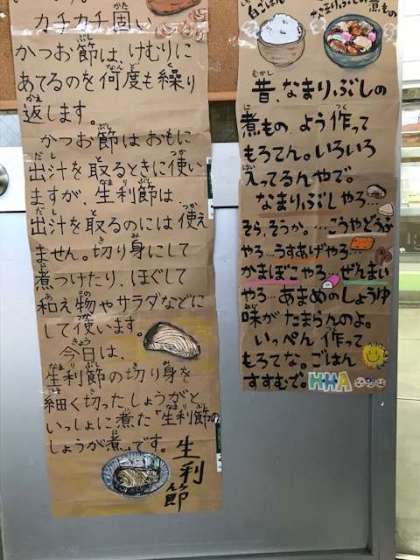 カチカチ固い
かつお節は、けむりに
あてるのを何度も繰り
返します。
かつお節はおもに
出汁を取るときに使い
ますが、生利節は、
出汁を取るのには使え
ません。切り身にして
煮つけたり、ほぐして
和え物やサラダなどに
して使います。
今日は、
生利節の切り身を
細く切ったしょうがと
いっしょに煮た"生利節の
しょうが煮"です。
生利節
白ごはん
なまりぶしの煮もの
昔、なまりぶしの
煮もの よう作って
もろてん。いろいろ
入ってるんやで。
なまりぶしやろ…
そら、そうか。…こうやどうふ
やろ…うすあげやろ…
かまぼこやろ…ぜんまい
やろ…あまめのしょうゆ
味がたまらんのよ。
いっぺん 作って
もろてな。ごはん
すすむで。